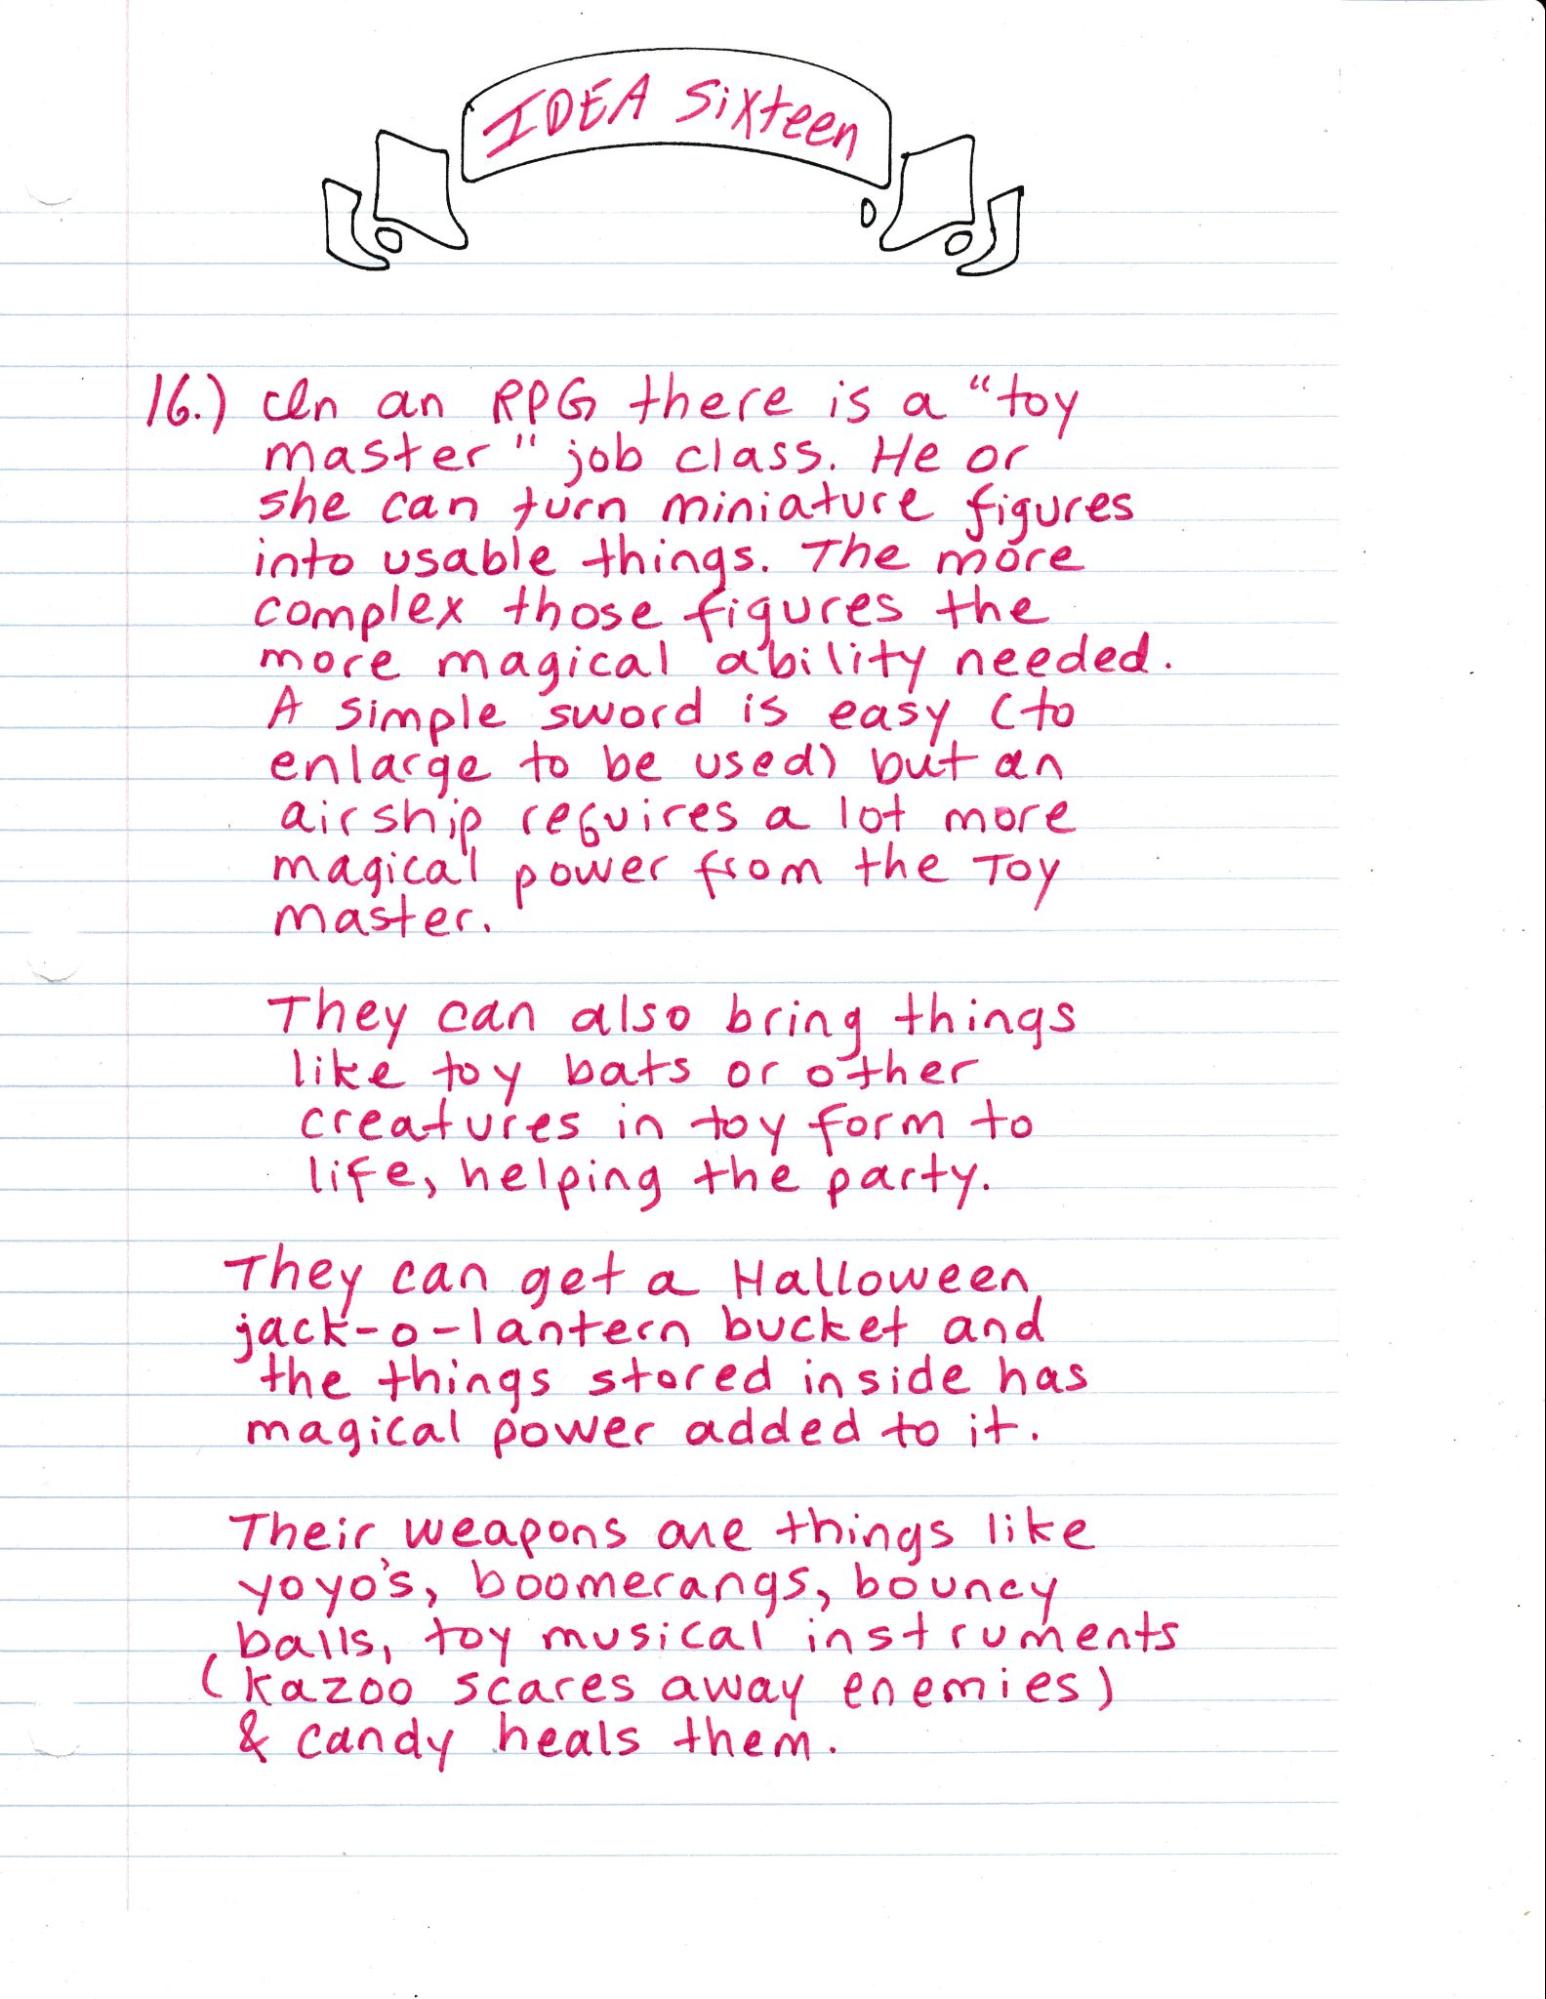 IDEA Sixteen
16.) In an RPG there is a "toy
master" job class. He or
she can turn miniature figures
into usable things. The more
complex those figures the
more magical ability needed.
A simple sword is easy (to
enlarge to be used) but an
airship requires a lot more
magical power from the Toy
master.
They can also bring things
like toy bats or other
creatures in toy form to
life, helping the party.
They can get a Halloween
jack-o-lantern bucket and
the things stored inside has
magical power added to it.
Their weapons are things like
yoyo's, boomerangs, bouncy
balls, toy musical instruments
(kazoo scares away enemies)
& candy heals them.